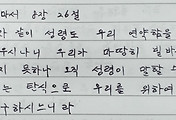 마서 8장 26절
와 같이 성령도 우리 연약함을
우시나니 우리가 마땅히 빌바
지 못하나 오직 성령이 말할 수
는 탄식으로 우리를 위하여
구하시느니라